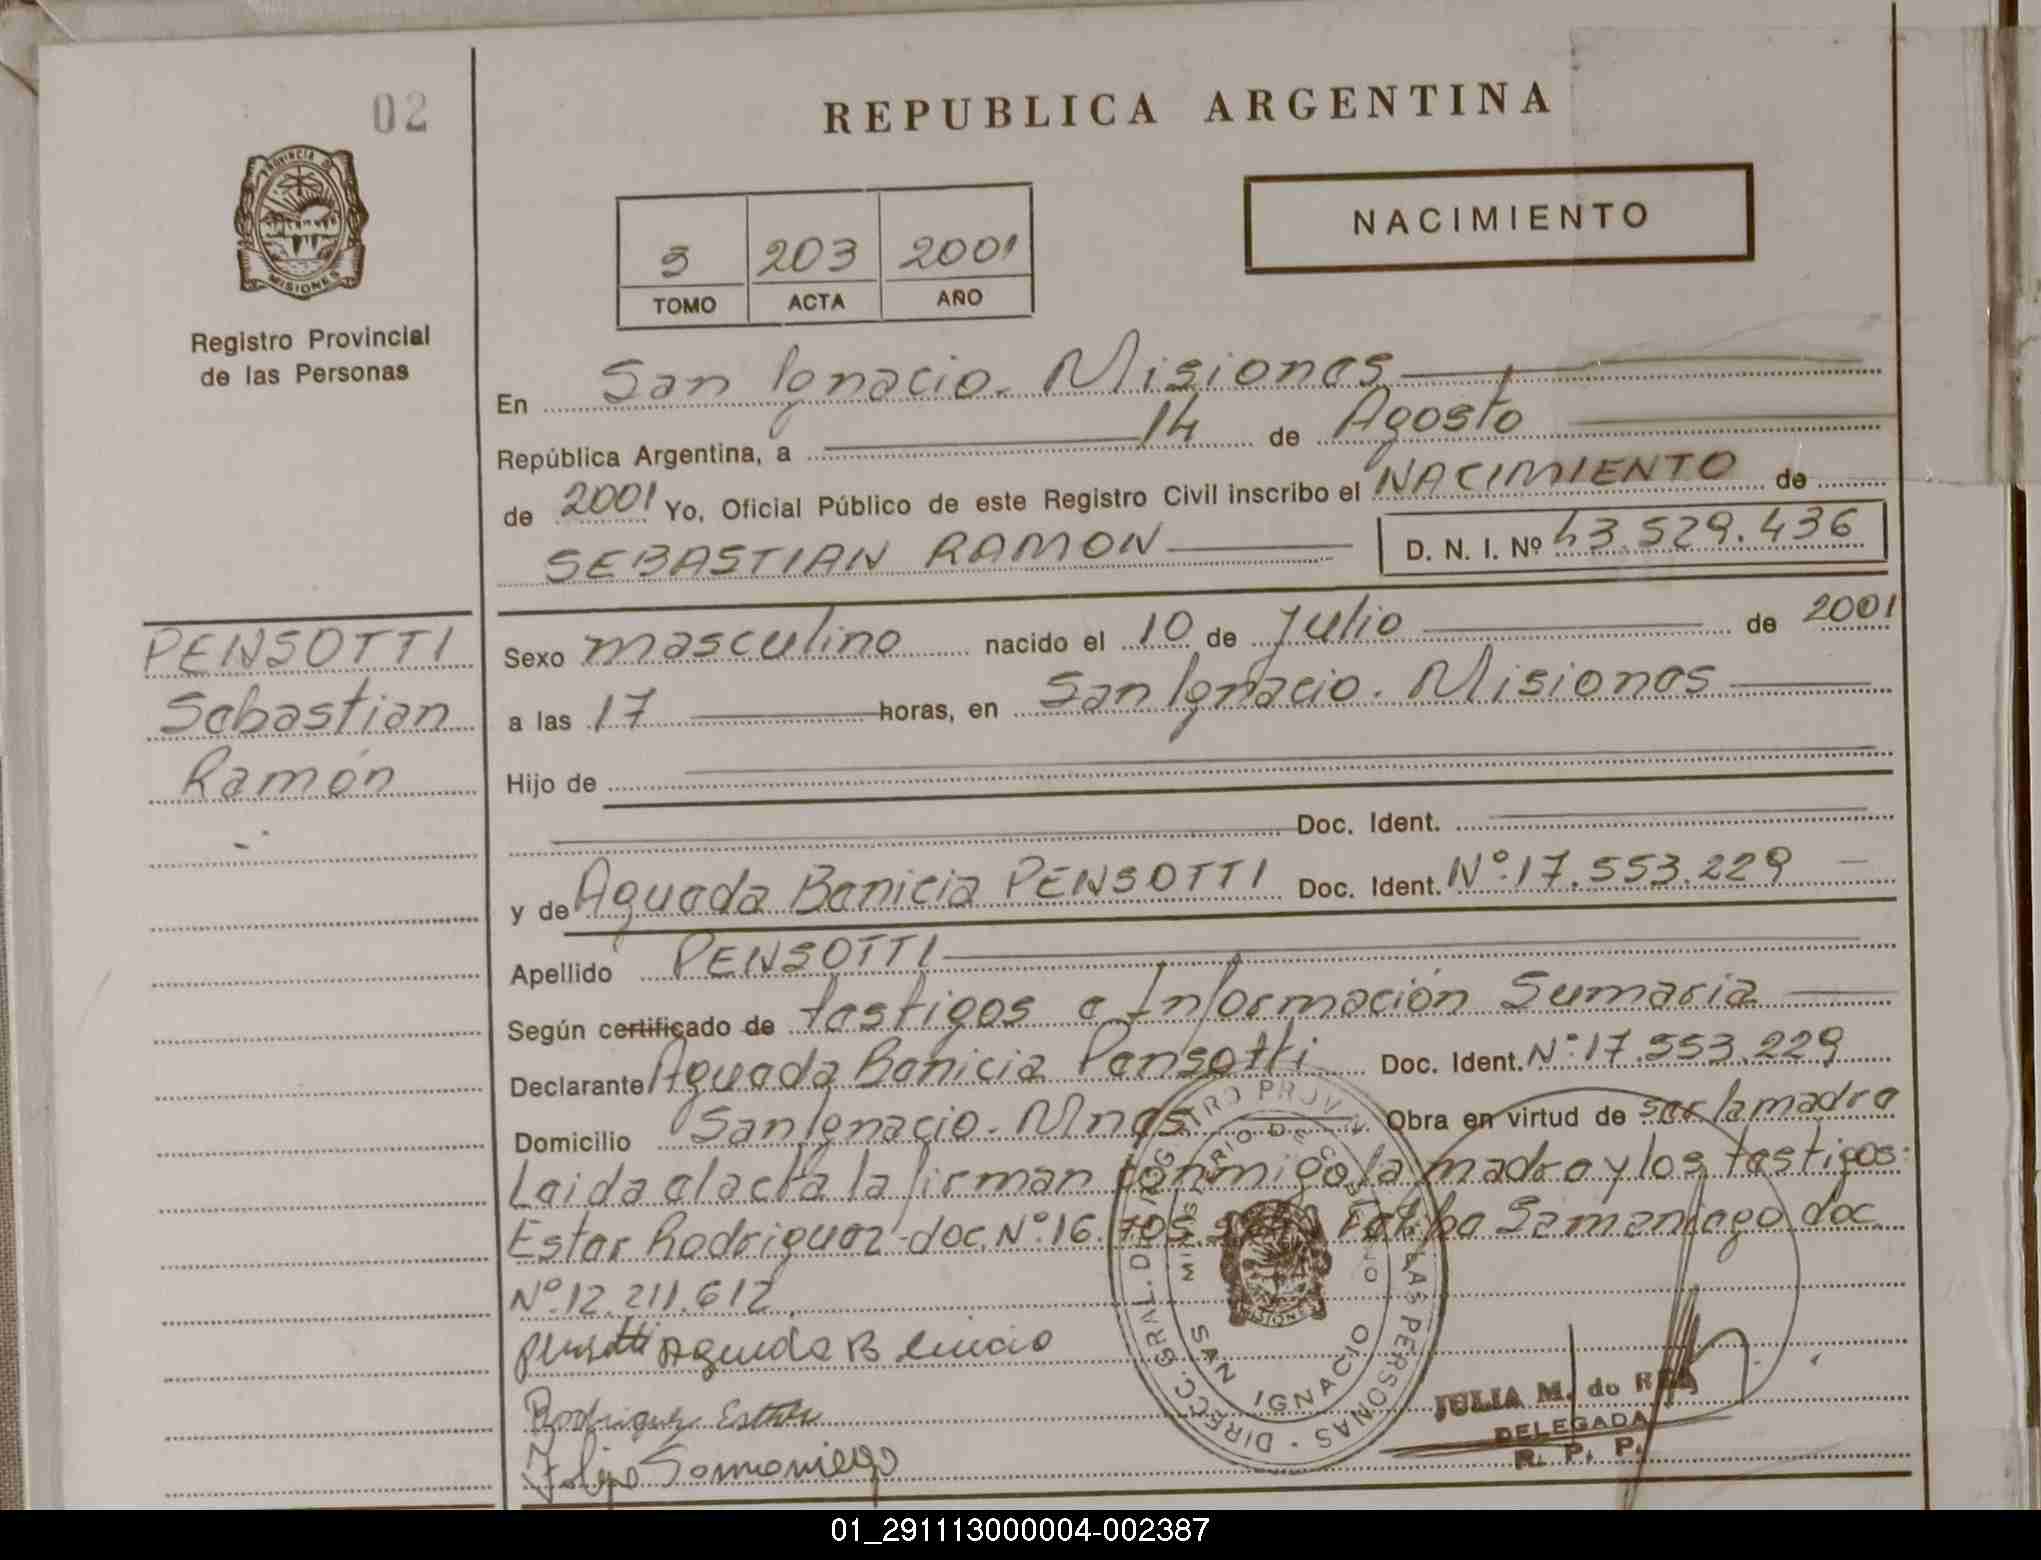 02
REPUBLICA ARGENTINA
PROVINCIA D
MISIONES
NACIMIENTO
3 203 2001
TOMO ACTA AÑO
Registro Provincial
de las Personas
En San Ignacio. Misiones
República Argentina, a 14 de Agosto
de 2001 Yo, Oficial Público de este Registro Civil inscribo el NACIMIENTO de
SEBASTIAN RAMON D. N. I. Nº 43.529.436
PENSOTTI
Sebastian
Ramón
Sexo masculino nacido el 10 de Julio de 2001
a las 17 horas, en San Ignacio. Misiones
Hijo de
Doc. Ident.
y de Agueda Benicia PENSOTTI Doc. Ident. Nº:17.553.229
Apellido PENSOTTI
Según certificado de testigos e Información Sumaria
Declarante Agueda Benicia Pensotti Doc. Ident. Nº:17.553.229
Domicilio San Ignacio. Mnes Obra en virtud de ser la madre
Leida el acta la firman conmigo la madre y los testigos:
Ester Rodriguez doc. Nº:16.705. Samaniego doc.
Nº:12.211.612
Pensotti Agueda Benicia
Rodriguez Esther
Samaniego
DIRECC. GRAL. DEL REGISTRO PROV. LAS PERSONAS
SAN IGNACIO
MISIONES
JULIA M. de
DELEGADA
R. P. P.
01_291113000004-002387